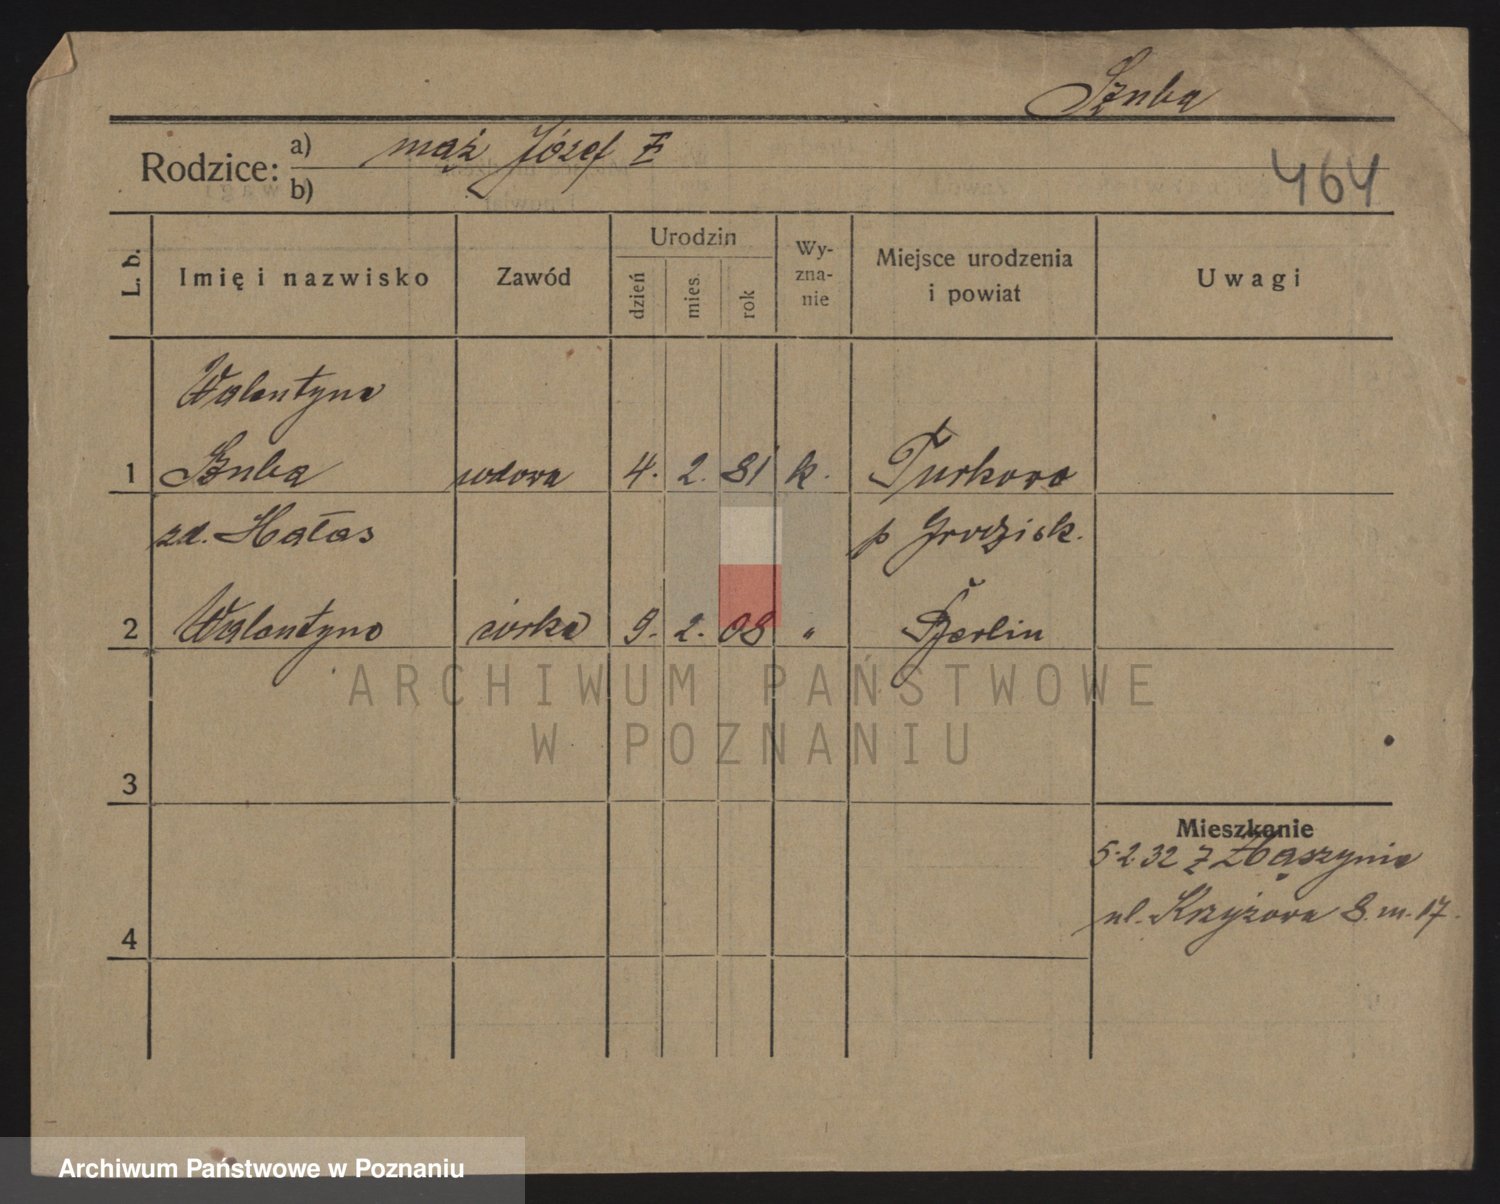 Sznba
Rodzice:
a) mąż Józef
b)
464
L. b.
Imię i nazwisko
Zawód
Urodzin
dzień
mies.
rok
Wy-
zna-
nie
Miejsce urodzenia
i powiat
Uwagi
Walentyna
1 Sznba wdowa 4. 2. 81 k. Turkowo
zd. Hałas p Grodzisk.
2 Walentyna córka 9. 2. 08 " Berlin
3
4
Mieszkanie
5.2.32 z Zbąszynia
ul. Krzyżowa 8. m. 17.
ARCHIWUM PAŃSTWOWE
W POZNANIU
Archiwum Państwowe w Poznaniu